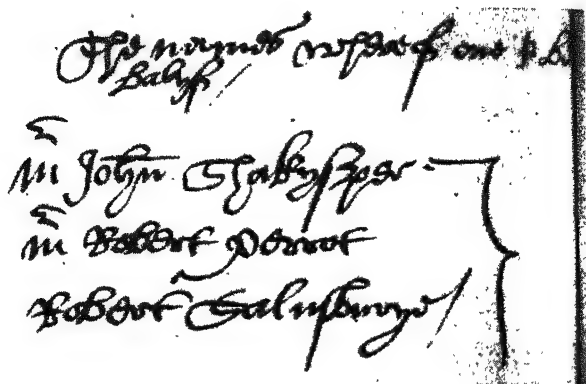 The names wherof one
balyf
mr John Shakyspere
mr Robert Perrot
Robert Salusburye